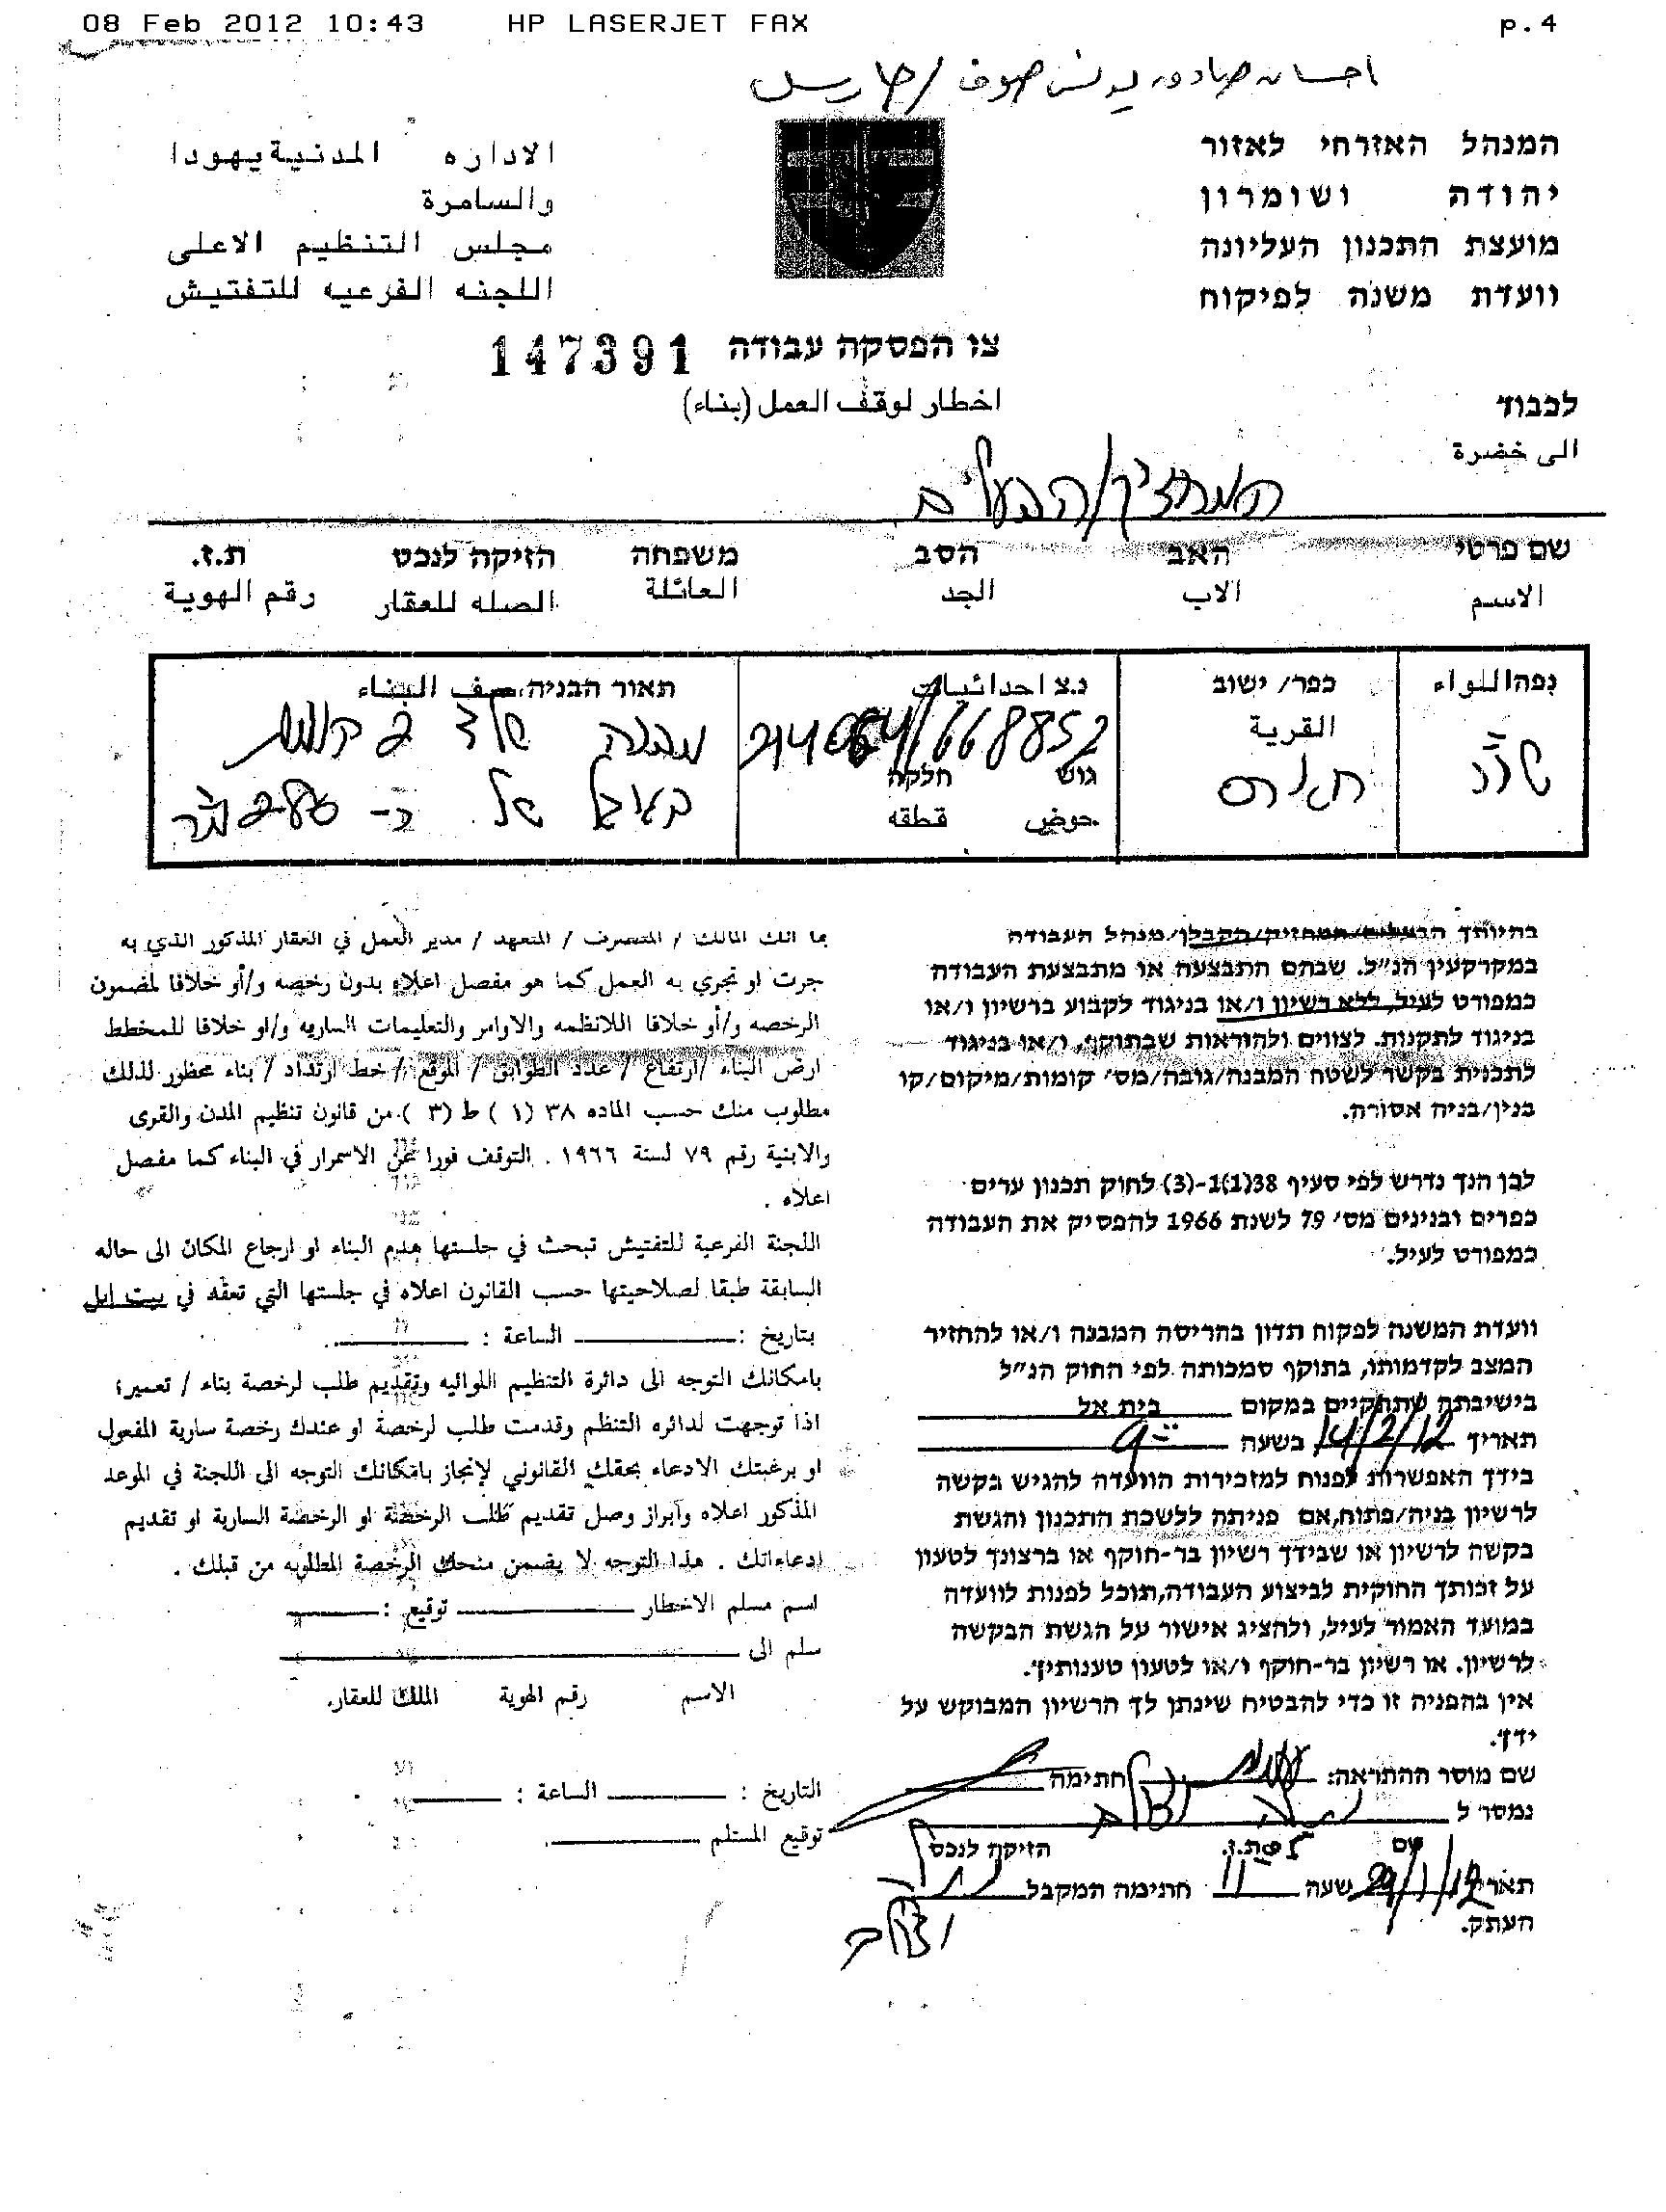 08 Feb 2012 10:43 HP LASERJET FAX p.4
احسان صادق يونس صوف / حارس
המנהל האזרחי לאזור
יהודה ושומרון
מועצת התכנון העליונה
וועדת משנה לפיקוח
الاداره المدنية يهودا
والسامرة
مجلس التنظيم الاعلى
اللجنه الفرعيه للتفتيش
צו הפסקה עבודה 147391
اخطار لوقف العمل (بناء)
לכבוד
الى خضرة
המחזיק/הבעלים
שם פרטי האב הסב משפחה הזיקה לנכט ת.ז.
الاسم الاب الجد العائلة الصله للعقار رقم الهوية
נפה اللواء כפר/ ישוב נ.צ احداثيات תאור הבניה وصف البناء
القرية
חארס
668852
מבנה
גוש חלקה
حوض قطقه
בגודל של כ-
בהיותך הבעלים/המחזיק/הקבלן/מנהל העבודה
במקרקעין הנ"ל. שבהם התבצעה או מתבצעת העבודה
כמפורט לעיל, ללא רשיון ו/או בניגוד לקבוע ברשיון ו/או
בניגוד לתקנות. לצווים ולהוראות שבתוקף, ו/או בניגוד
לתכנית בקשר לשטח המבנה/גובה/מס' קומות/מיקום/קו
בנין/בניה אסורה.
לבן הנך נדרש לפי סעיף 38(1)1-(3) לחוק תכנון ערים
כפרים ובנינים מס' 79 לשנת 1966 להפסיק את העבודה
כמפורט לעיל.
וועדת המשנה לפקוח תדון בהריסה המבנה ו/או להחזיר
המצב לקדמותו, בתוקף סמכותה לפי החוק הנ"ל
בישיבתה שתתקיים במקום בית אל
תאריך 14/2/12 בשעה 9
בידך האפשרות לפנות למזכירות הוועדה להגיש בקשה
לרשיון בניה/פתוח,אם פניתה ללשכת התכנון והגשת
בקשה לרשיון או שבידך רשיון בר-חוקף או ברצונך לטעון
על זכותך החוקית לביצוע העבודה,תוכל לפנות לוועדה
במועד האמור לעיל, ולהציג אישור על הגשת הבקשה
לרשיון. או רשיון בר-חוקף ו/או לטעון טענותיך.
אין בהפניה זו כדי להבטיח שינתן לך הרשיון המבוקש על
ידך.
שם מוסר ההתראה: חתימה
נמסר ל
שם ת.ז. הזיקה לנכס
תאריך 29/1/12 שעה 11 חתימה המקבל
העתק.
بما انك المالك / المتصرف / المتعهد / مدير العمل في العقار المذكور الذي به
جرت او تجري به العمل كما هو مفصل اعلاه بدون رخصه و/أو خلافا لمضمون
الرخصه و/أو خلافا اللانظمه والاوامر والتعليمات الساريه و/او خلافا للمخطط
ارض البناء /ارتفاع / عدد الطوابق / الموقع / خط ارتداد / بناء محظور لذلك
مطلوب منك حسب الماده ٣٨ (١) ط (٣) من قانون تنظيم المدن والقرى
والابنية رقم ٧٩ لسنة ١٩٦٦ . التوقف فورا عن الاسمرار في البناء كما مفصل
اعلاه .
اللجنة الفرعية للتفتيش تبحث في جلستها هدم البناء او ارجاع المكان الى حاله
السابقة طبقا لصلاحيتها حسب القانون اعلاه في جلستها التي تعقه في بيت ايل
بتاريخ : الساعة :
بامكانك التوجه الى دائرة التنظيم اللواليه وتقديم طلب لرخصة بناء / تعمير؛
اذا توجهت لدائره التنظم وقدمت طلب لرخصة او عندك رخصة سارية المفعول
او برغبتك الادعاء بحقك القانوني لإنجاز بامكانك التوجه الى اللجنة في الموعد
المذكور اعلاه وابراز وصل تقديم طلب الرخصة او الرخصة السارية او تقديم
ادعاءاتك . هذا التوجه لا يضمن منحك الرخصة المطلوبه من قبلك .
اسم مسلم الاخطار توقيع :
سلم الى
الاسم رقم الهوية الملك للعقار.
التاريخ : الساعة :
توقيع المستلم